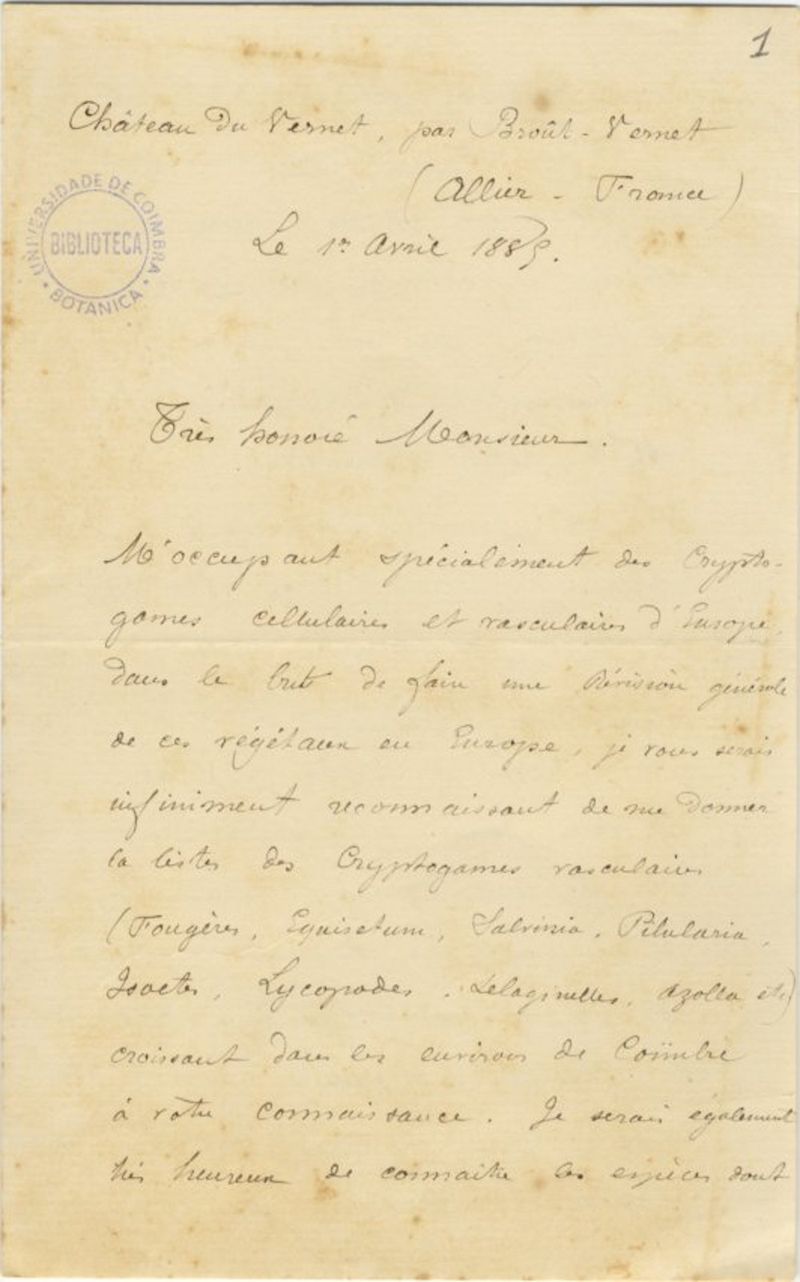 1
Château du Vernet, par Broût-Vernet
(Allier - France)
Le 1er Avril 1885.
UNIVERSIDADE DE COIMBRA
BIBLIOTECA
BOTANICA
Très honoré Monsieur.
M'occupant spécialement des Crypto-
games cellulaires et vasculaires d'Europe,
dans le but de faire une Révision générale
de ces végétaux en Europe, je vous serais
infiniment reconnaissant de me donner
la listes des Cryptogames vasculaires
(Fougères, Equisetum, Salvinia, Pilularia,
Isoetes, Lycopodes, Selaginelles, Azolla etc)
croissant dans les environs de Coïmbre
à votre connaissance. Je serais également
très heureux de connaitre les espèces dont